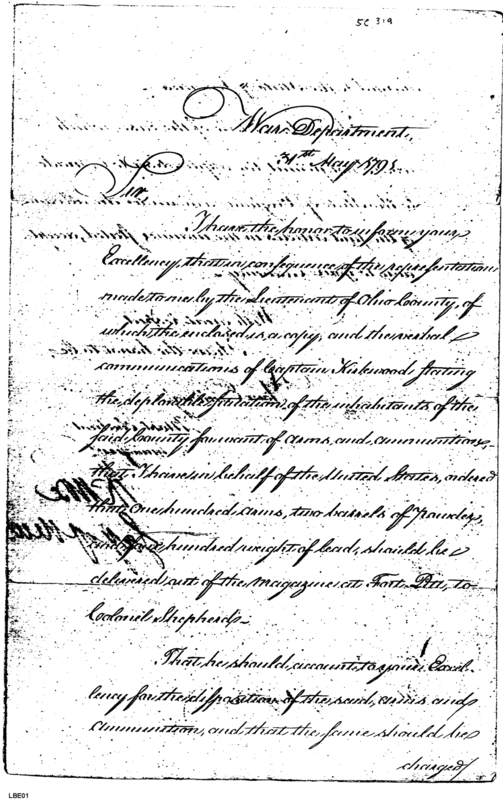 5C 319
War Department,
31st May 1791
Sir,
I have the honor to inform your
Excellency, that in consequence of the representation
made to me by the Lieutenant of Ohio County, of
which the enclosed is a copy, and the verbal
communications of Captain Kirkwood stating
the deplorable situation of the inhabitants of the
said County for want of arms, and ammunition,
that I have in behalf of the United States, ordered
that One hundred arms, two barrels of Powder,
and hundred weight of lead, should be
delivered out of the magazine at Fort Pitt, to
Colonel Shepherd.
That he should account to your Excel-
lency for the disposition of the said, arms and
ammunition, and that the same should be
charged
LBE01